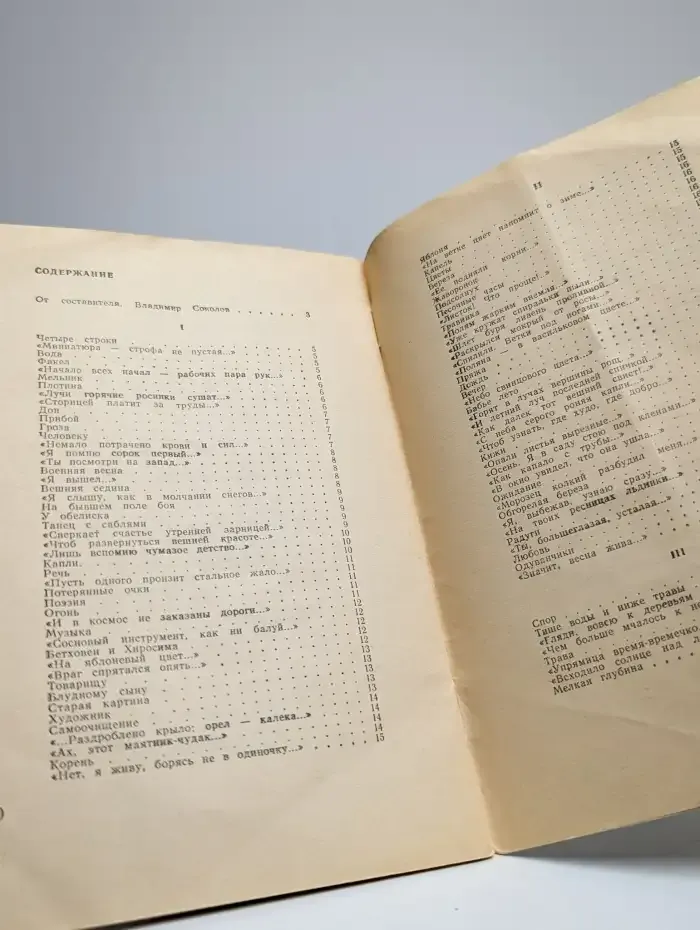 СОДЕРЖАНИЕ
От составителя. Владимир Соколов . . . . . . 3
I
Четыре строки . . . 5
«Миниатюра — строфа не пустая...» . . . 5
Вода . . . 5
Факел . . . 5
«Начало всех начал — рабочих пара рук...» . . . 6
Мельник . . . 6
Плотина . . . 6
«Лучи горячие росинки сушат...» . . . 6
«Сторицей платит за труды...» . . . 7
Дон . . . 7
Прибой . . . 7
Гроза . . . 7
Человеку . . . 7
«Немало потрачено крови и сил...» . . . 8
«Я помню сорок первый...» . . . 8
«Ты посмотри на запад...» . . . 8
Военная весна . . . 8
«Я вышел...» . . . 8
Вешняя седина . . . 9
«Я слышу, как в молчании снегов...» . . . 9
На бывшем поле боя . . . 9
У обелиска . . . 9
Танец с саблями . . . 9
«Сверкает счастье утренней зарницей...» . . . 10
«Чтоб развернуться вешней красоте...» . . . 10
«Лишь вспомню чумазое детство...» . . . 10
Капли . . . 11
Речь . . . 11
«Пусть одного пронзит стальное жало...» . . . 11
Потерянные очки . . . 11
Поэзия . . . 12
Огонь . . . 12
«И в космос не заказаны дороги...» . . . 12
Музыка . . . 12
«Сосновый инструмент, как ни балуй...» . . . 13
Бетховен и Хиросима . . . 13
«На яблоневый цвет...» . . . 13
«Враг спрятался опять...» . . . 13
Товарищу . . . 14
Блудному сыну . . . 14
Старая картина . . . 14
Художник . . . 14
Самоочищение
«...Раздроблено крыло: орел — калека...»
«Ах, этот маятник-чудак...»
Корень
«Нет, я живу, борясь не в одиночку...» . . . 15
II
Яблоня . . . 15
«На ветке цвет напомнит о зиме...» . . . 15
Капель
Цветы
Береза
«Ее подняли корни...»
Жаворонок
Подсолнух
Песочные часы
«Листок! Что проще!..»
Травинка
«Полям жарким внемли...»
«Уже кружат спиральки пыли...»
«Шлет буря ливень проливной...»
«Раскрылся мокрый от росы...»
«Спилили. Ветки под ногами...»
«Поляна — в васильковом цвете...»
Пряжа
Дождь
Вечер
«Небо свинцового цвета...»
Бабье лето
«Горят в лучах вершины рощ...»
«И летний луч последней спичкой...»
«Как далек тот вешний свист!..»
«С неба серого роняя капли...»
«Чтоб узнать, где худо, где добро...»
Книжи
«Опали листья вырезные...»
«Осень. Я в саду стою под кленами...»
«Как капало с трубы...»
«В окно увидел, что она ушла...»
Ожидание
«Морозец колкий разбудил меня...»
Обгорелая береза
«Я, выбежав, узнаю сразу...»
«На твоих ресницах льдинки...»
Радуги
«Ты, большеглазая, усталая...»
Любовь
Одуванчики
«Значит, весна жива...»
III
Спор
Тише воды и ниже травы
«Гляди, вовсю к деревьям
«Чем больше мчалось к
Трава
«Упрямица время-времечко
«Всходило солнце над
Мелкая глубина